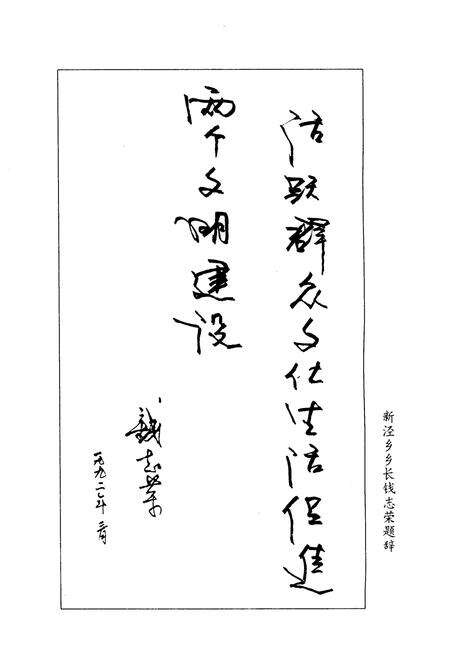 活跃群众文化生活促进
两个文明建设
钱志荣
一九九二年三月
新泾乡乡长钱志荣题辞